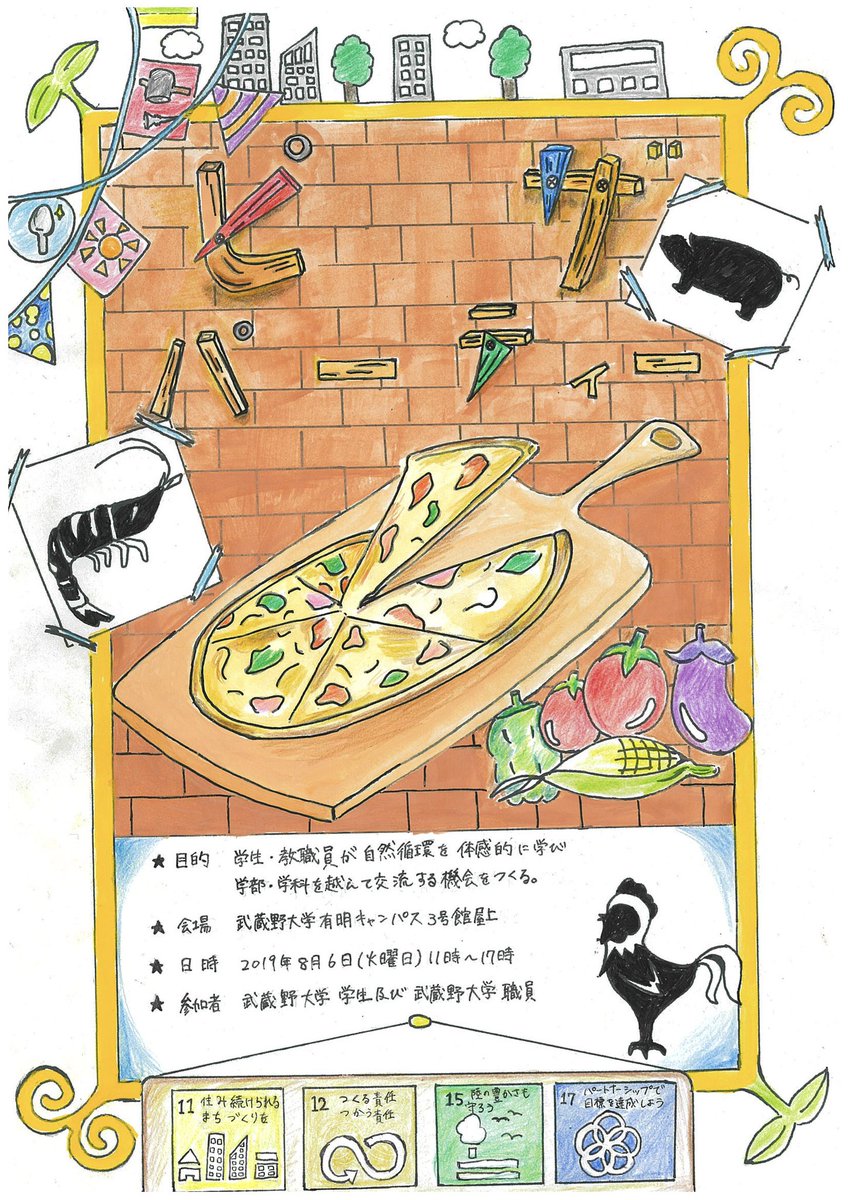 ピザ
パーティー
★ 目的 学生・教職員が自然循環を体感的に学び
学部・学科を越えて交流する機会をつくる。
★ 会場 武蔵野大学有明キャンパス3号館屋上
★ 日時 2019年8月6日(火曜日)11時〜17時
★ 参加者 武蔵野大学 学生及び 武蔵野大学 職員
11 住み続けられる
まちづくりを
12 つくる責任
つかう責任
15 陸の豊かさも
守ろう
17 パートナーシップで
目標を達成しよう